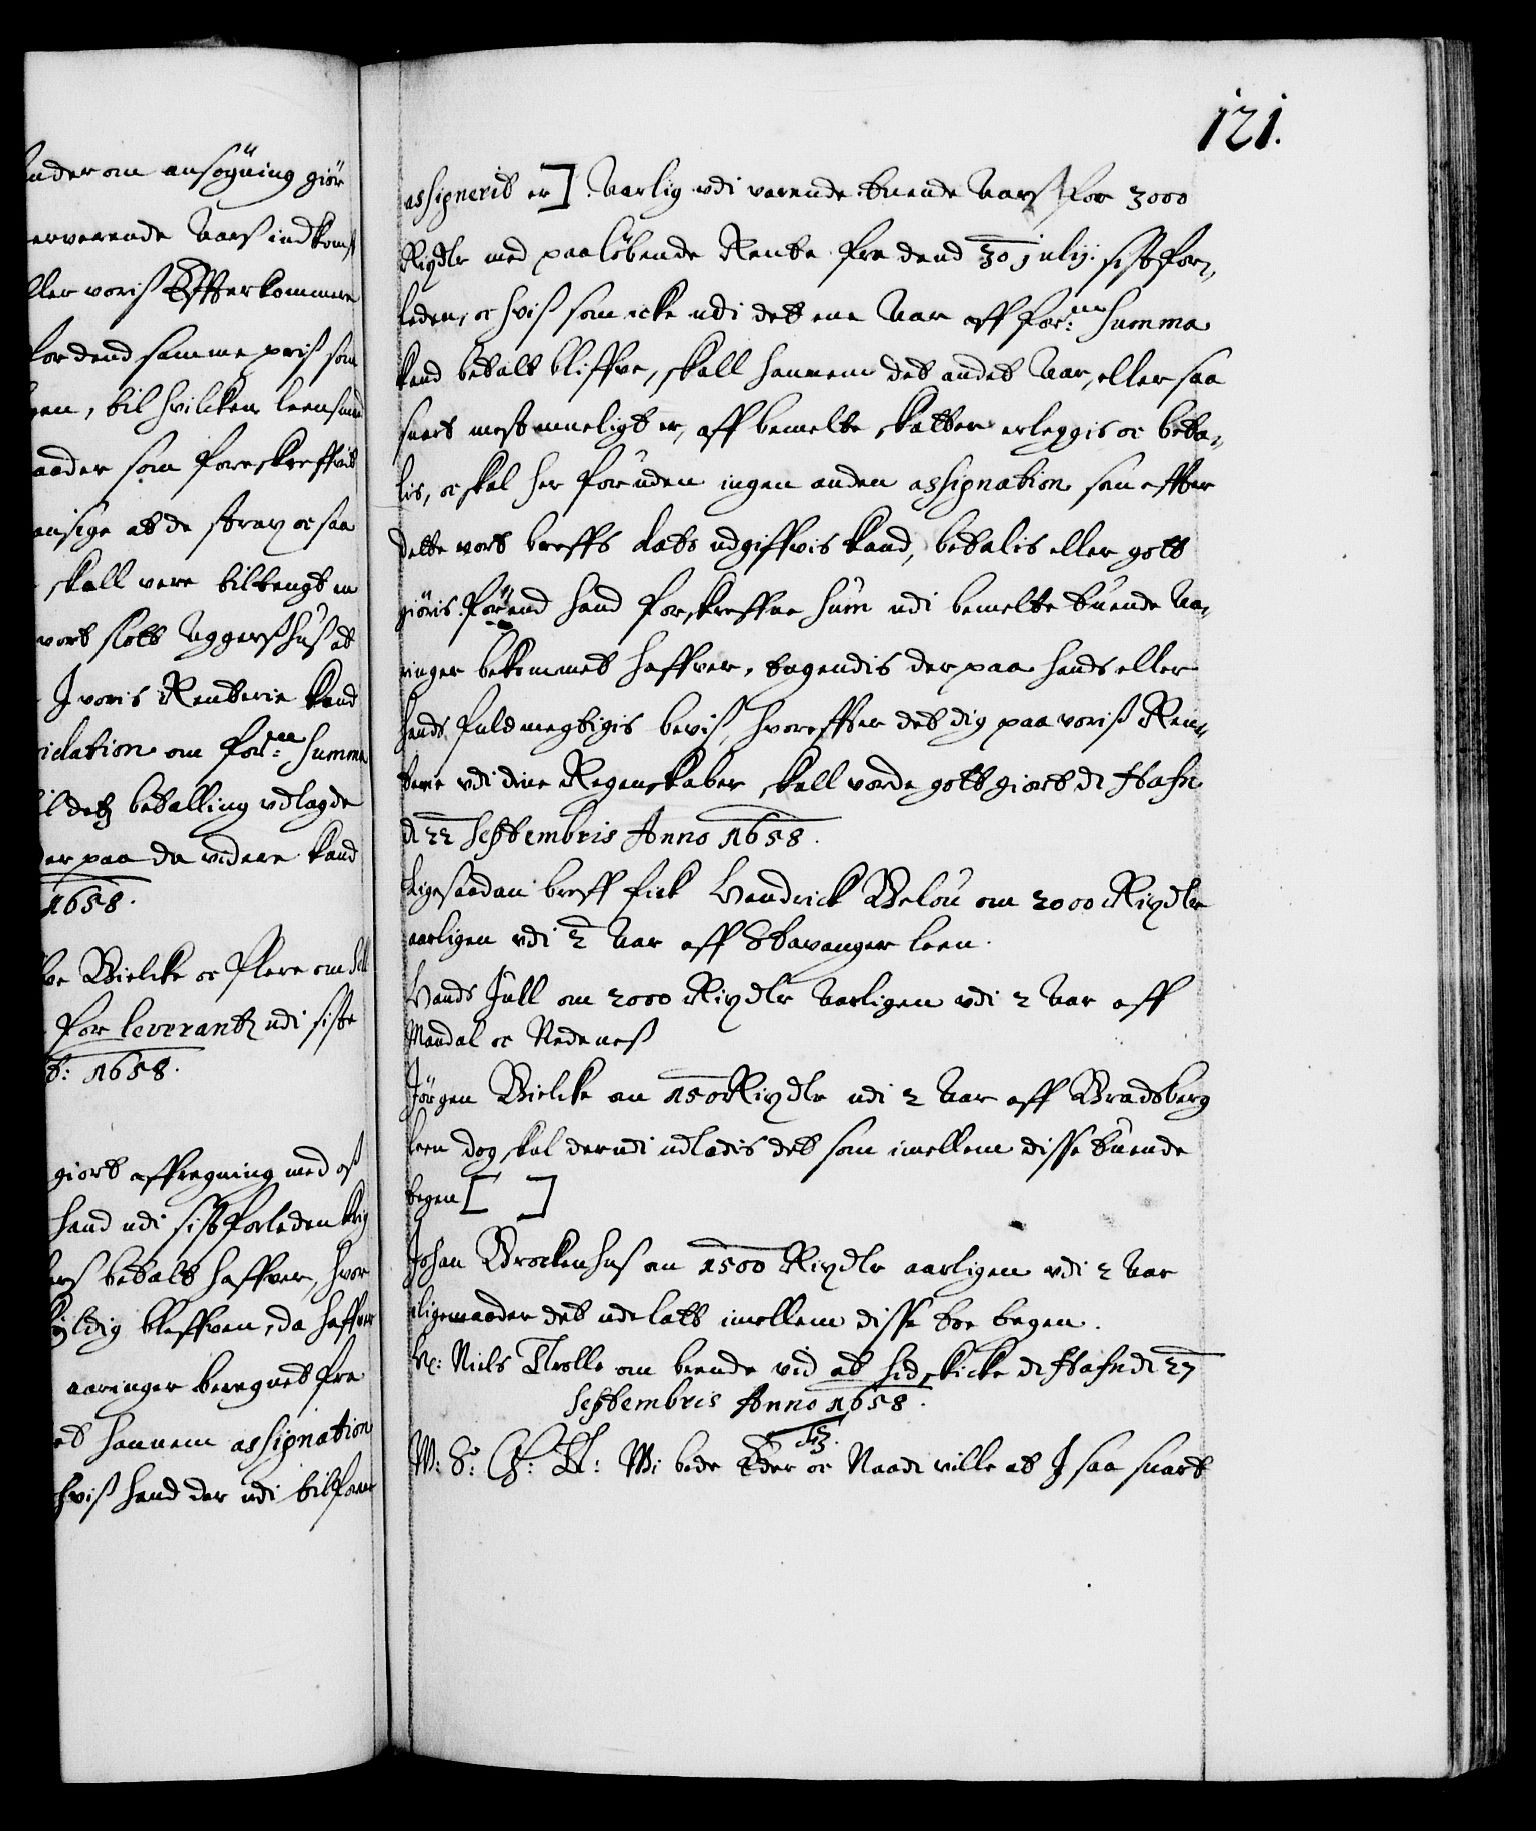 121.
nder om ansögning giör
erverende Aars indkomst
ller voris Effterkommere
for dend samme priß som
gen, til hvilcken leensma
aader som foreskreffvit
ansige at de strax oc saa
skall vere tiltengt en
vort slott Aggershuß at
J voris Renterie kand
idation om for:ne Summa
il detz betalling udlagde
der paa da videre kand
1658.
ve Bielcke oc flere om
for leverantz udi siste
t: 1658.
giort affregning med oß
hand udi sistforleden krig
ers betalt haffver, hvor
yldig bleffven, da haffver
aaringer beregnet fra
et hannem assignation
hviß hand der udi tilkom
assignerit er] Aarlig udi verende tuende Aars for 3000
Rixdlr med paaløbende Rente fra dend 30 julij sistfor-
leden, oc hviß som icke udi det ene Aar aff for:ne Summa
kand betalt bliffve, skall hannem det andet Aar, eller saa
snart mest mueligt er, aff bemelte skatter erleggis oc beta-
lis, oc skal her foruden ingen anden assignation som effter
dette vort breffs dato udgiffvis kand, betalis eller gott
giöris förend hand forskreffne Sum udi bemelte tuende Aa-
ringer bekommet haffver, tagendis der paa hands eller
hands fuldmegtigis beviß, hvoreffter det dig paa voris Ren-
terie udi dine Regenskaber skall vorde gott giort dt Hafn
d 22 Septembris Anno 1658.
Ligesaadan breff fick Hendrick Below om 2000 Rixdlr
aarligen udi 2 Aar aff Stavanger leen.
Hands Jull om 2000 Rixdlr Aarligen udi 2 Aar aff
Mandal oc Nedeneß
Jörgen Bielcke om 1500 Rixdlr udi 2 Aar aff Bradsberg
leen dog skal der udi udladis det som imellem disse tuende
tegen [ ]
Johan Brockenhuß om 1500 Rixdlr aarligen udi 2 Aar
iligemaader det udelatt imellem disse toe tegen.
H: Niels Trolle om brende ved at hid skicke dt Hafn dt 27
Septembris Anno 1658.
F3.
W: S: G: T: Wi bede Eder oc Naadi ville at J saa snart